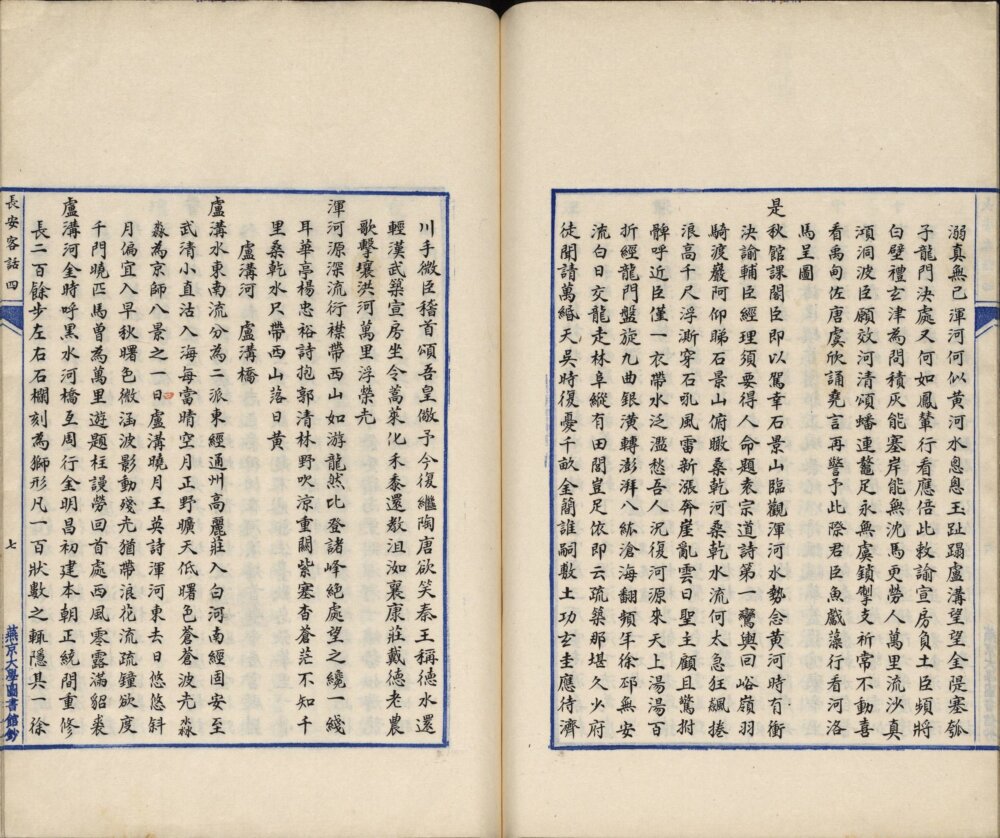 溺真無已渾河何似黃河水恩恩玉趾蹋盧溝望望金隄塞瓠
子龍門決處又何如鳳輦行看應倍此敕諭宣房負土臣頻將
白壁禮玄津為問積灰能塞岸能無沈馬更勞人萬里流沙真
澒洞波臣願效河清頌蟠連鼇足永無虞鎖掣支祈常不動喜
看禹甸佐唐虞欣誦堯言再警予此際君臣魚戲藻行看河洛
馬呈圖
是秋館課閣臣即以駕幸石景山臨觀渾河水勢念黃河時有衝
決諭輔臣經理須要得人命題袁宗道詩第一鸞輿回峪嶺羽
騎渡巖阿仰睇石景山俯瞰桑乾河桑乾水流何太急狂飆捲
浪高千尺浮澌穿石吼風雷新漲奔崖亂雲日聖主顧且驚拊
髀呼近臣僅一衣帶水泛濫愁吾人況復河源來天上湯湯百
折經龍門盤旋九曲銀潢轉澎湃八紘滄海翻頻年徐邳無安
流白日交龍走林阜縱有田閭豈足依即云疏築那堪久少府
徒聞請萬緡天吴時復憂千畝金蕳誰嗣數土功玄圭應待濟
川手微臣稽首頌吾皇儆予今復繼陶唐欲笑秦王稱德水還
輕漢武築宣房坐令蒿萊化禾黍還教沮洳襄康莊戴德老農
歌擊壤洪河萬里浮榮光
渾河源深流衍襟帶西山如游龍然比登諸峰絕處望之纔一綫
耳華亭楊忠裕詩抱郭清林野吹涼重關紫塞杳蒼茫不知千
里桑乾水只帶西山落日黃
盧溝河 盧溝橋
盧溝水東南流分為二派東經通州高麗莊入白河南經固安至
武清小直沽入海每當晴空月正野曠天低曙色蒼蒼波光淼
淼為京師八景之一日盧溝曉月王英詩渾河東去日悠悠斜
月偏宜入早秋曙色微涵波影動殘光猶帶浪花流疏鐘欲度
千門曉匹馬曾為萬里遊題柱謾勞回首處西風零露滿貂裘
盧溝河金時呼黑水河橋亙周行金明昌初建本朝正統間重修
長二百餘步左右石欄刻為獅形凡一百狀數之輒隱其一徐
長安客話四
七
燕京大學圖書館鈔